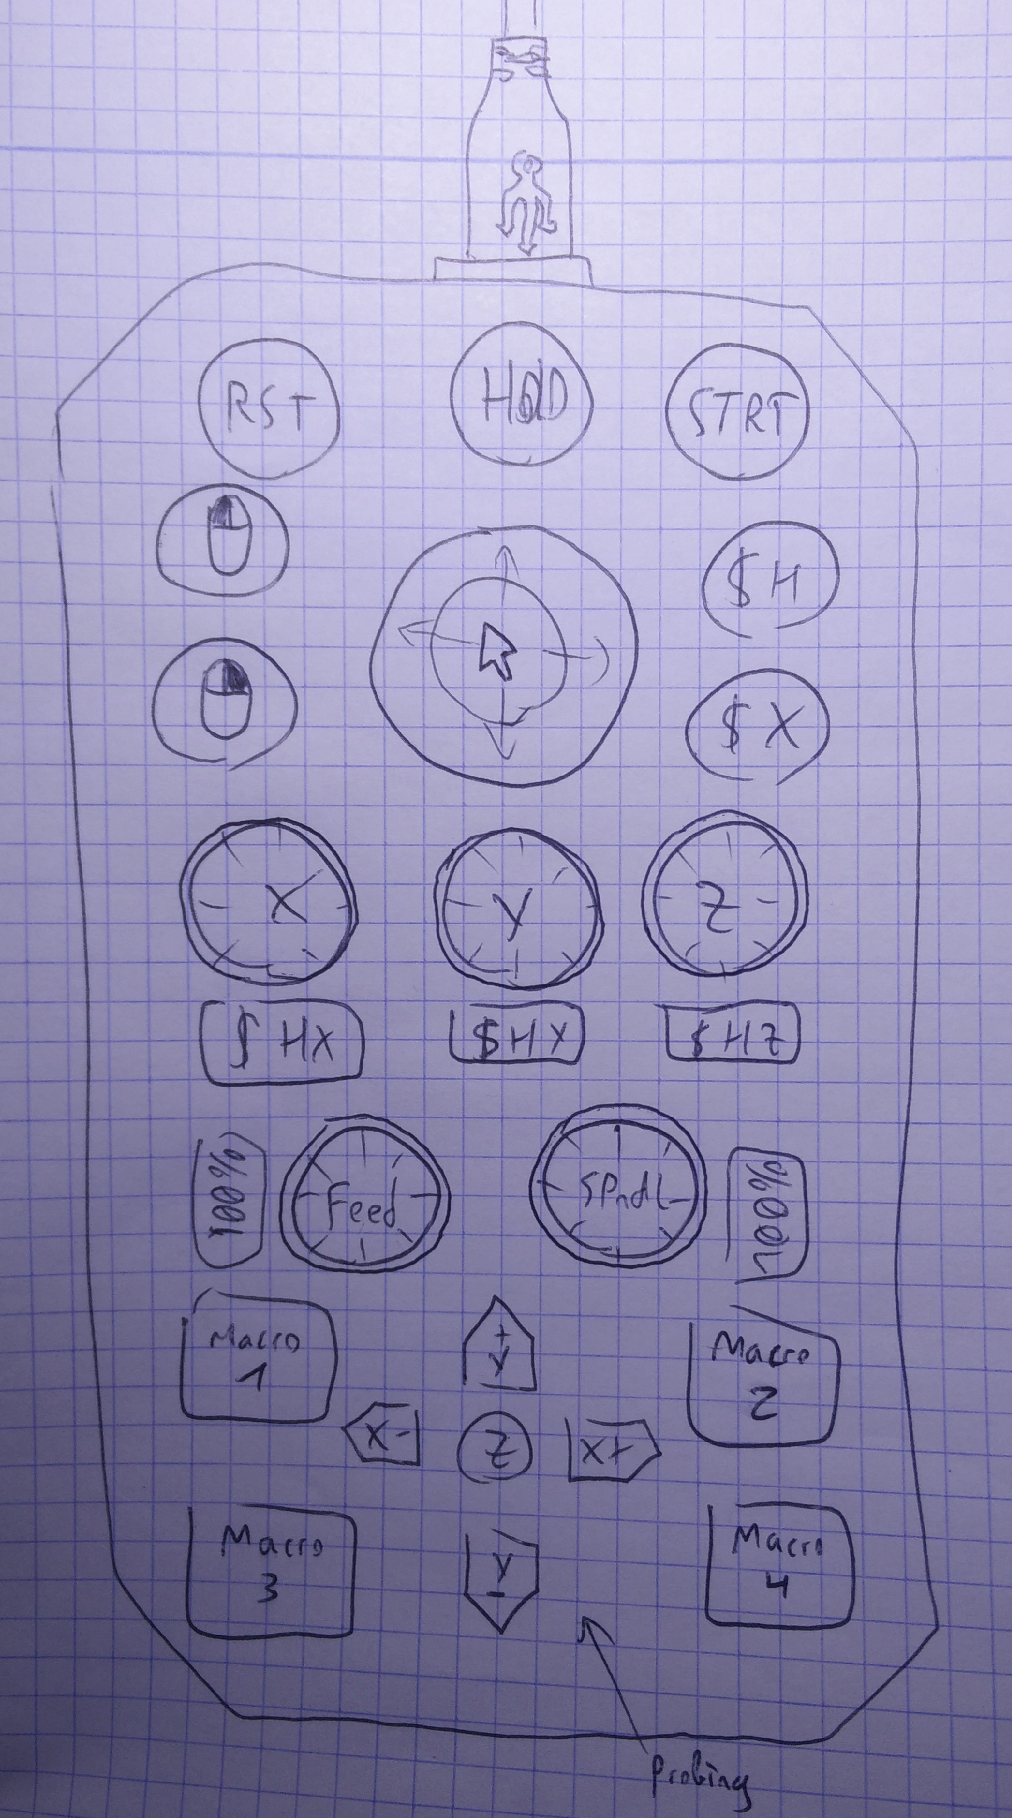 RST
HOLD
STRT
$H
$X
X
Y
Z
$HX
$HY
$HZ
100%
Feed
SPndl
100%
Macro
1
+
Y
Macro
2
X-
Z
X+
Macro
3
Y
-
Macro
4
Probing